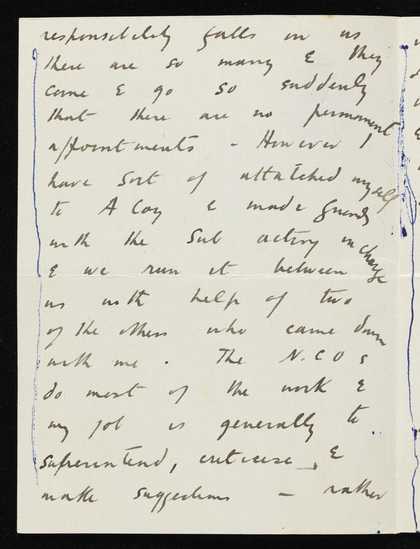 responsibility falls on us
there are so many & they
come & go so suddenly
that there are no permanent
appointments - However I
have sort of attatched myself
to A Coy & made friends
with the Sub acting in charge
& we run it between
us with help of two
of the others who came down
with me. The N.C.O s
do most of the work &
my job is generally to
superintend, criticise, &
make suggestions - rather